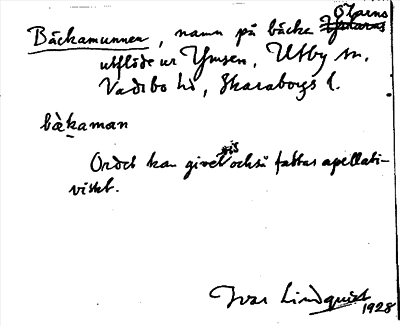 Bäckamunnen, namn på bäcke Ölarns
utflöde ur Ymsen, Utby sn.
Vadsbo hd, Skaraborgs l.
bàkaman
Ordet kan givetvis också fattas apellati-
viskt.
Ivar Lindquist
1928